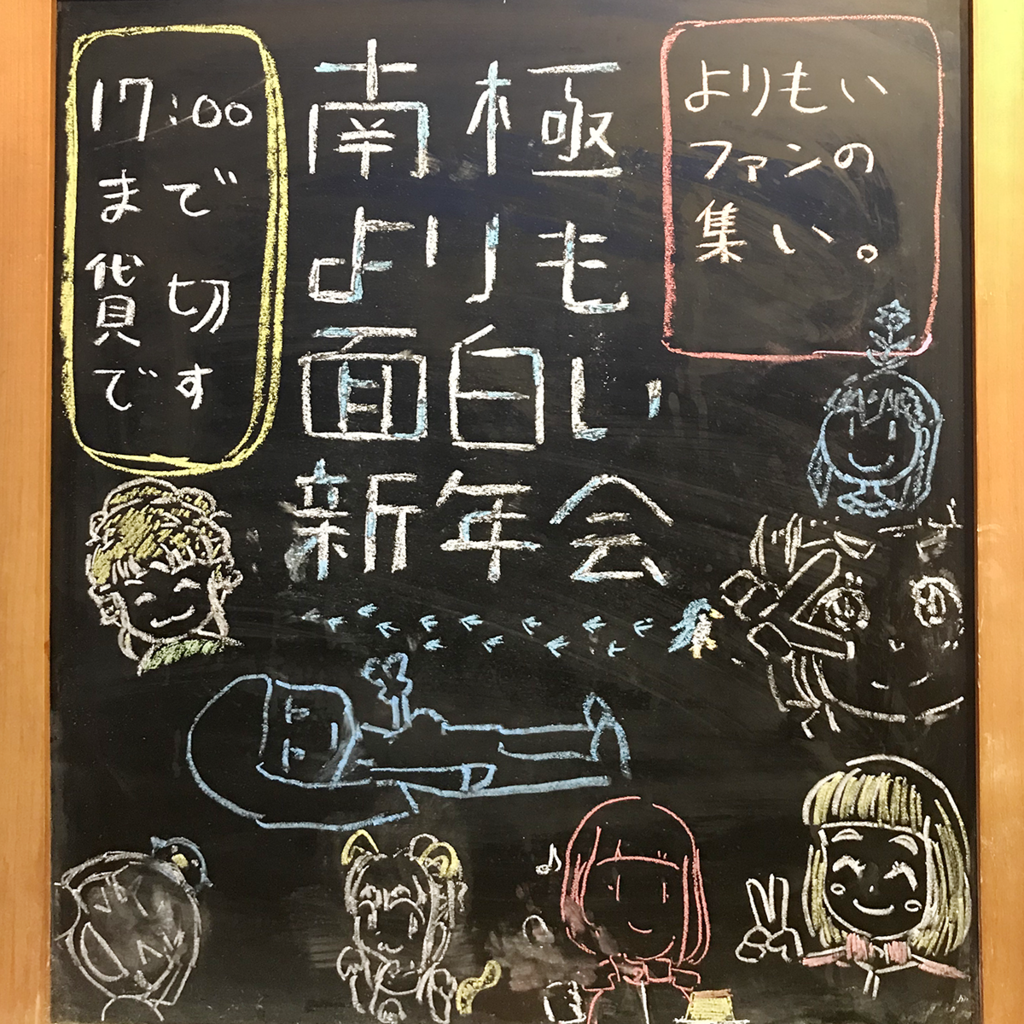 17:00
まで
貸切
です
南極
よりも
面白い
新年会
よりもい
ファンの
集い。